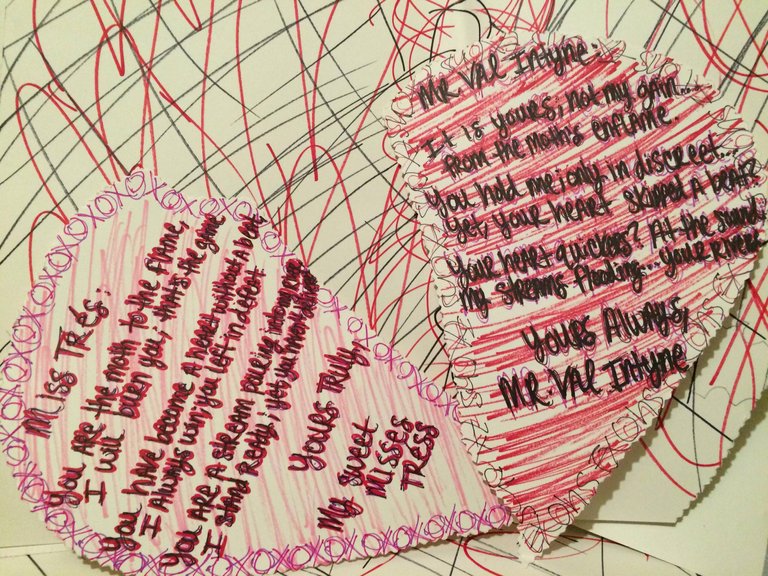 Miss Tres:
You are the moth to the flame,
I will burn you, that's the game
You have become a heart without a beat,
I Always win, you left in defeat
You are A stream pouring into my river
I stand ready; yet, you
Yours Truly,
My Sweet
Misses
Tress
Mr. Val Intyne:
It is yours; not my gain...
from the moth's enflame.
You hold me; only in discreet...
yet, your heart skipped A beat?
Your heart quickens? At the
my streams flooding... your River
Yours Always,
Mr. Val Intyne